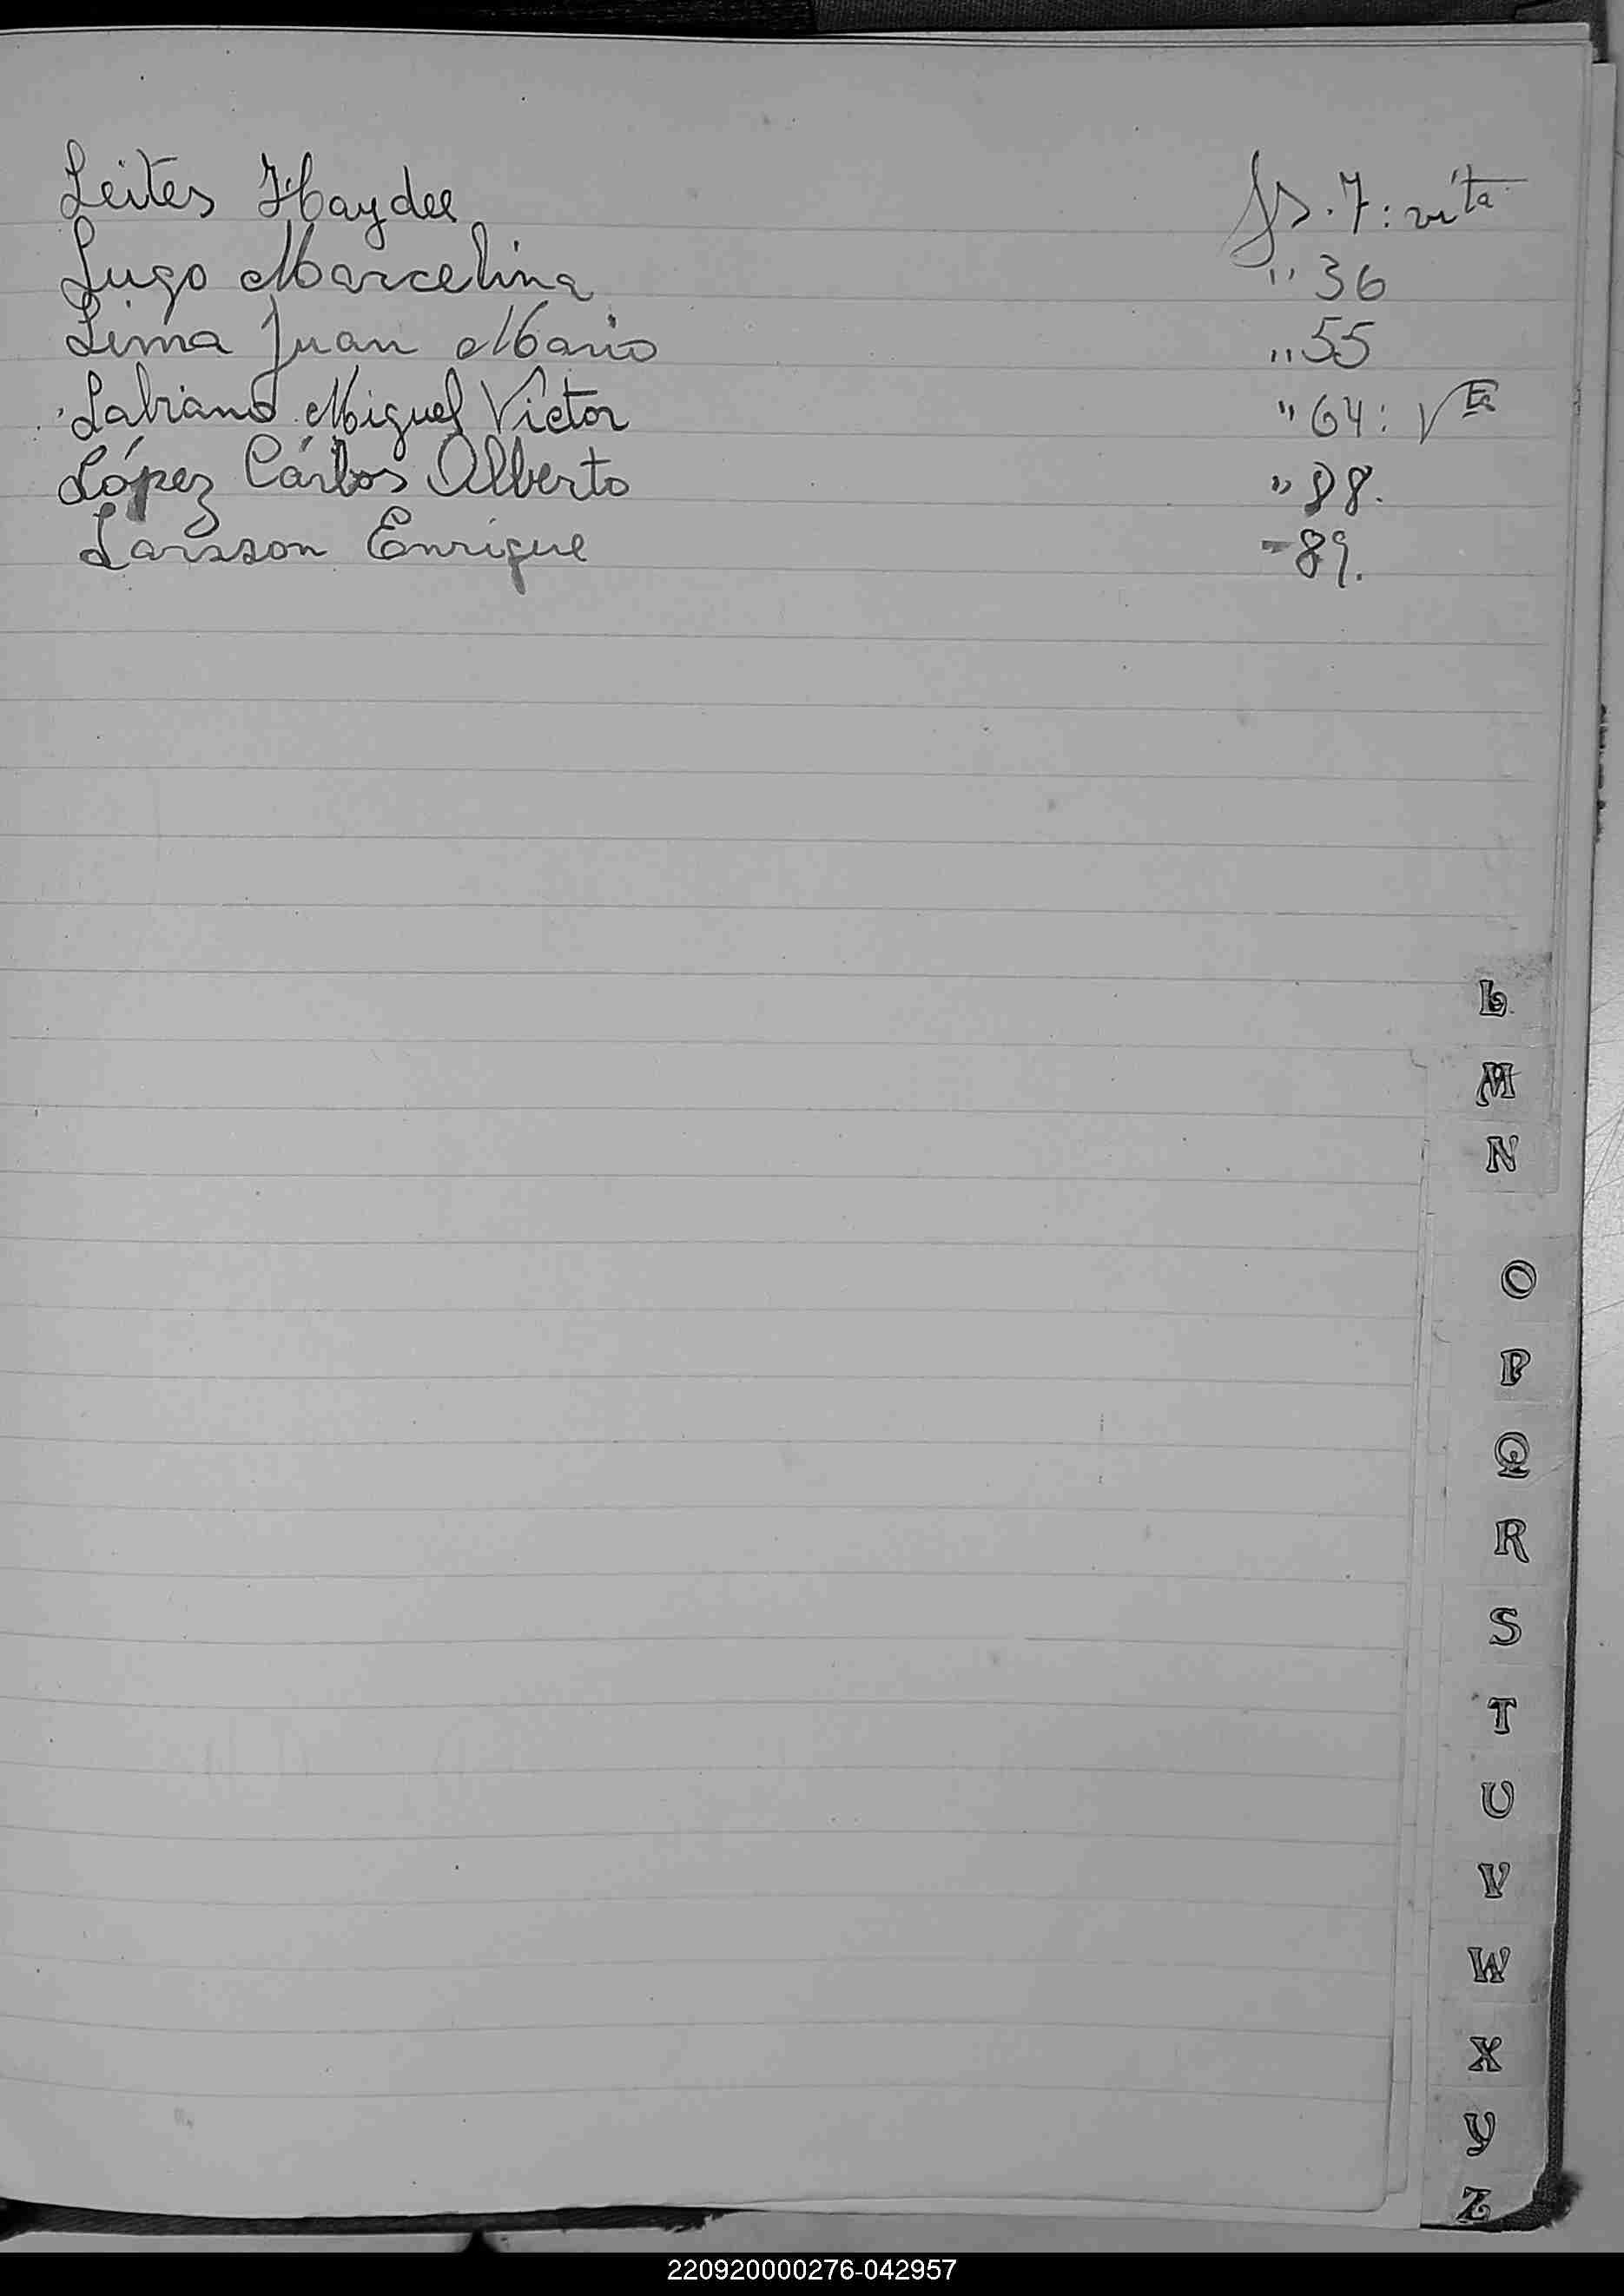 Leites Haydee fs. 7: vta
Lugo Marcelina " 36
Lima Juan Mario " 55
Labiano Miguel Víctor " 64: Vta
López Cárlos Alberto " 88.
Larsson Enrique - 89.
L
M
N
O
P
Q
R
S
T
U
V
W
X
Y
Z
220920000276-042957